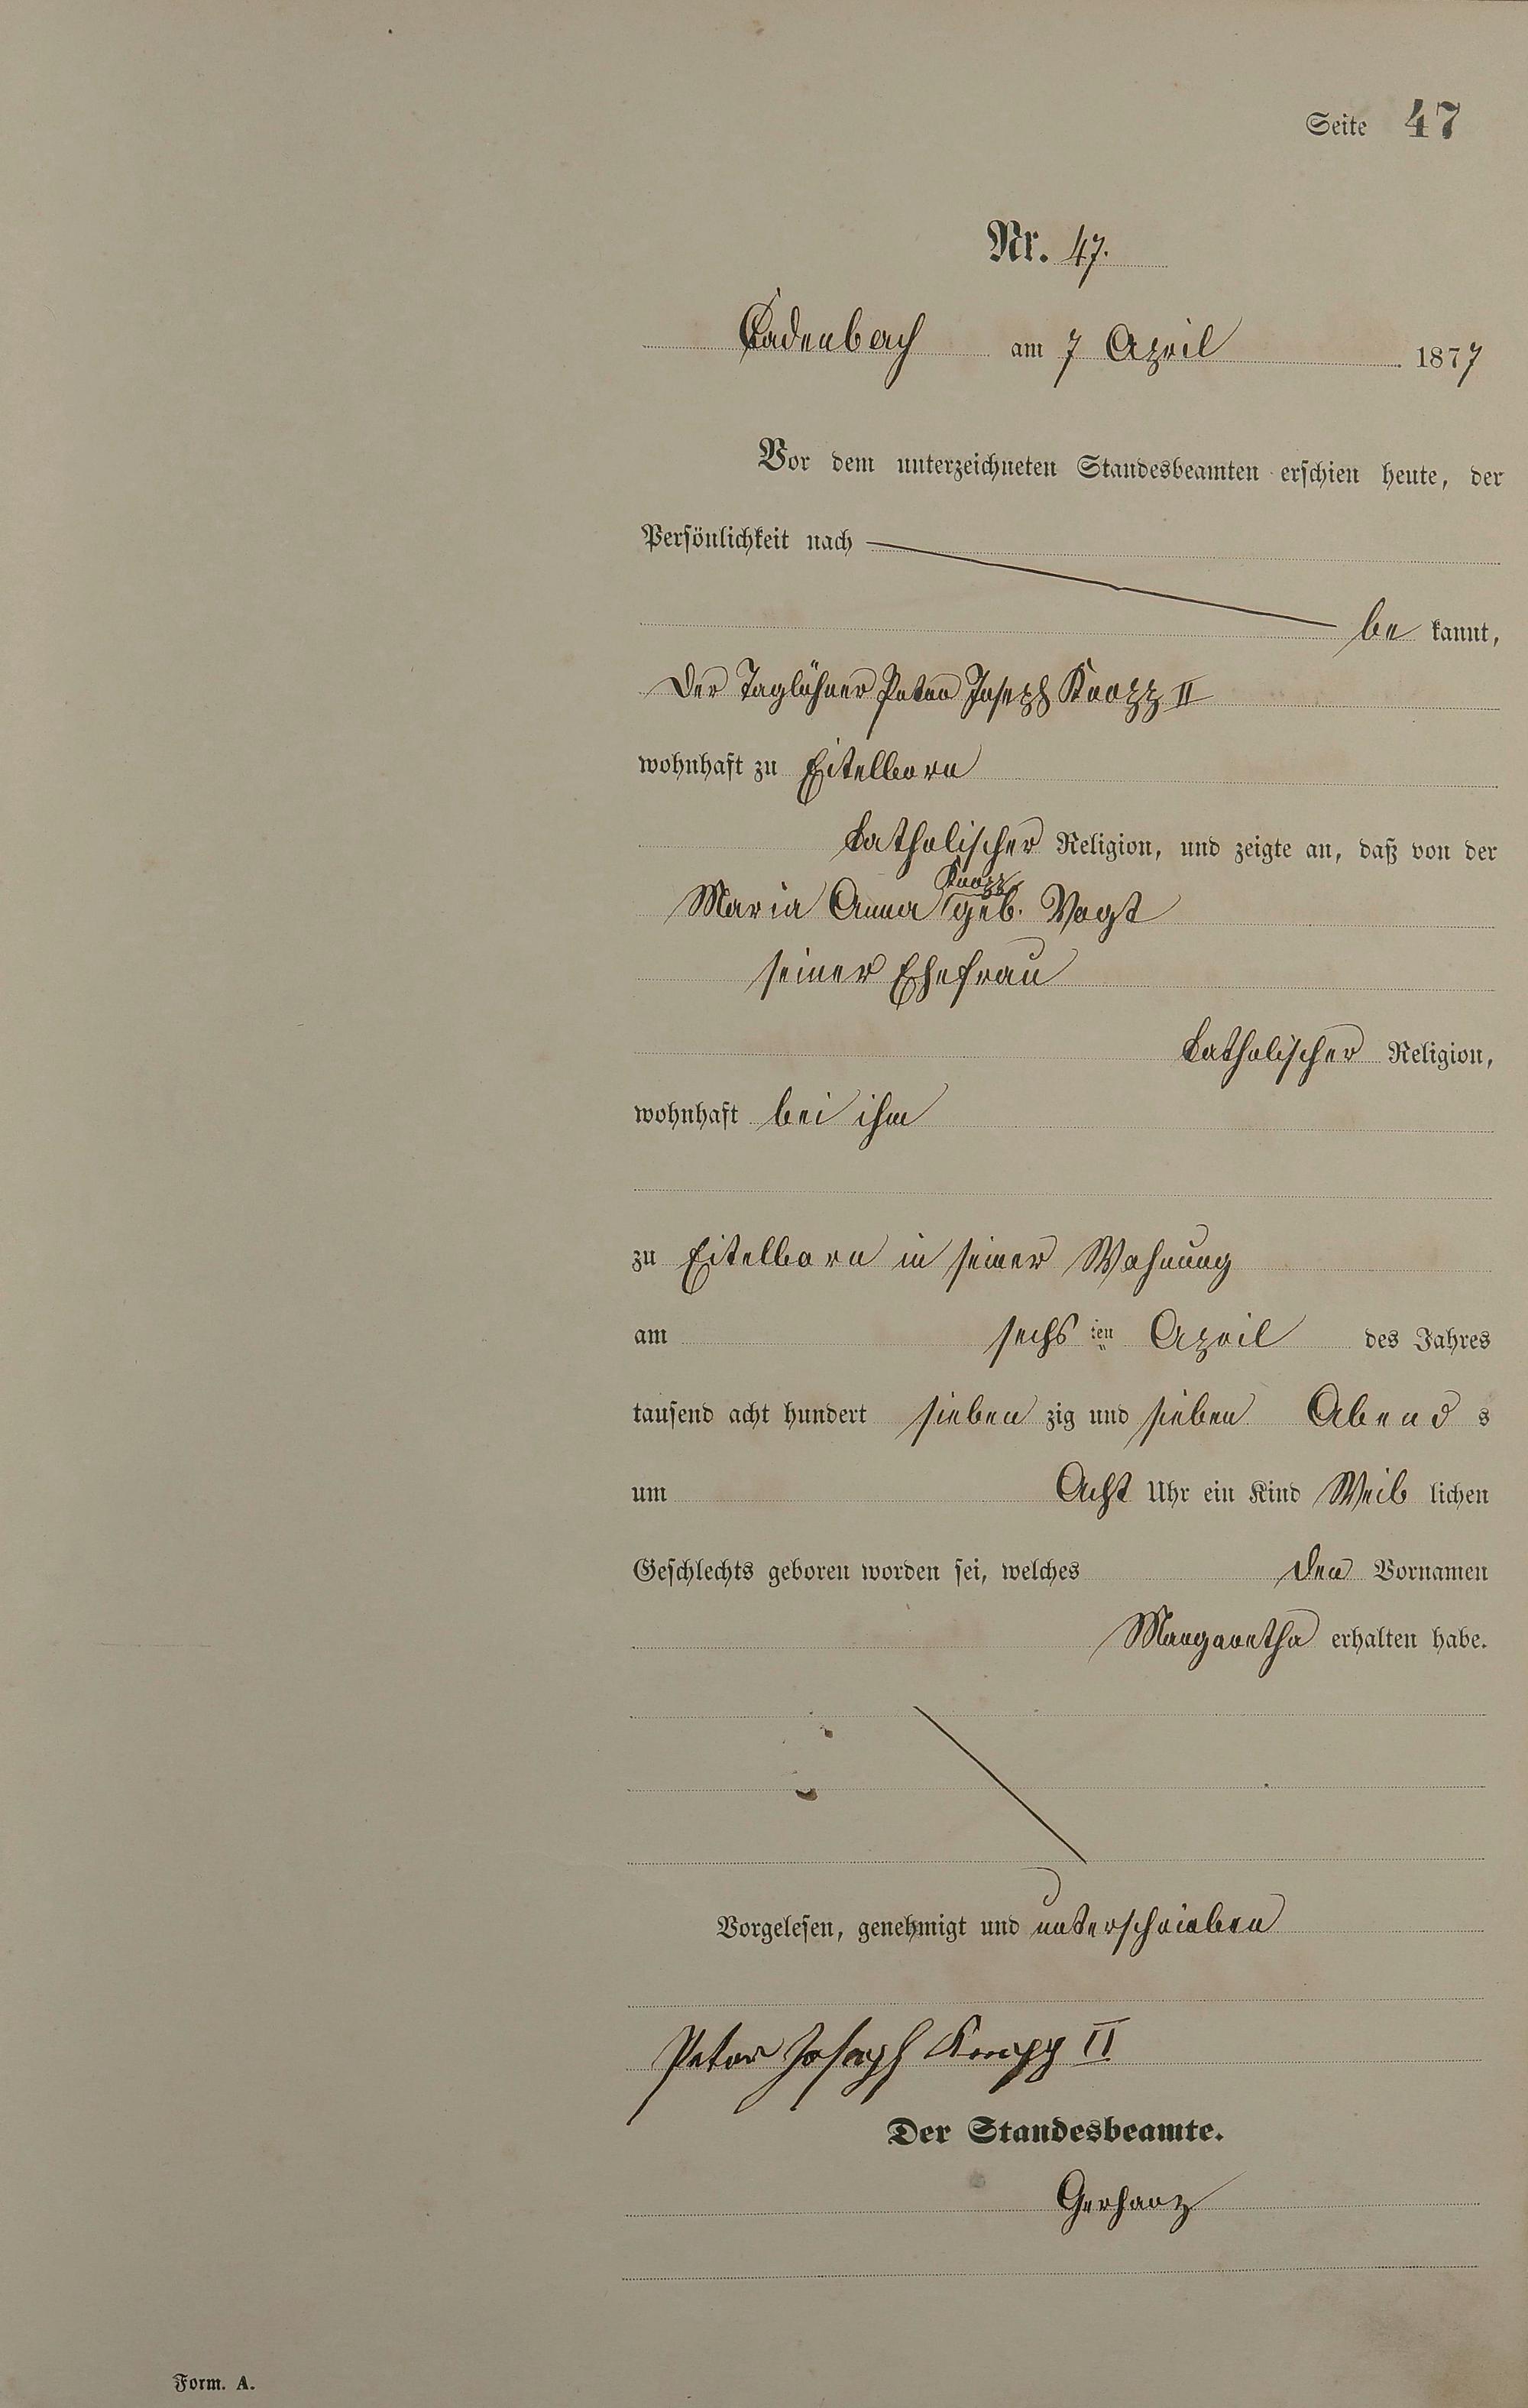 Seite 47
Nr. 47.
Cadenbach am 7 April 1877
Vor dem unterzeichneten Standesbeamten erschien heute, der
Persönlichkeit nach
be kannt,
Der Taglöhner Peter Joseph Knopp II
wohnhaft zu Eitelborn
katholischer Religion, und zeigte an, daß von der
Knopp
Maria Anna geb. Vogt
seiner Ehefrau
katholischer Religion,
wohnhaft bei ihm
zu Eitelborn in seiner Wohnung
am sechs ten April des Jahres
tausend acht hundert sieben zig und sieben Abend s
um Acht Uhr ein Kind Weib lichen
Geschlechts geboren worden sei, welches den Vornamen
Margaretha erhalten habe.
Vorgelesen, genehmigt und unterschrieben
Peter Joseph Knopp II
Der Standesbeamte.
Gerharz
Form. A.